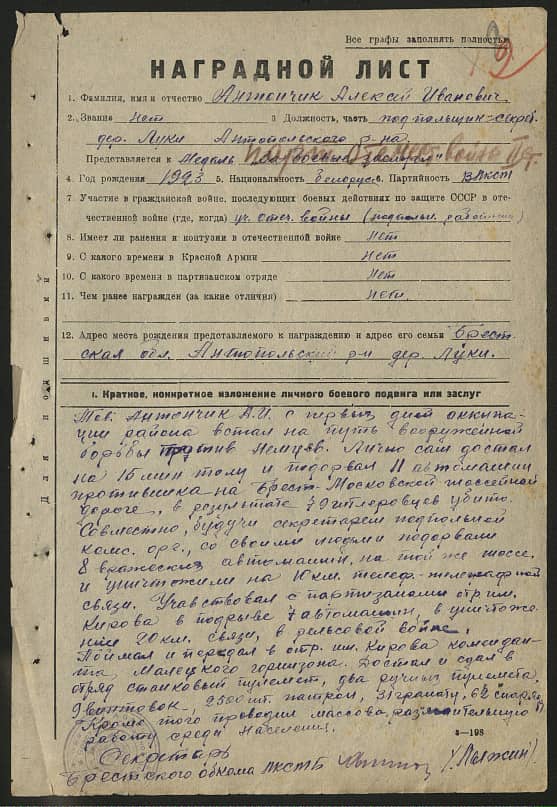 Все графы заполнять полностью
НАГРАДНОЙ ЛИСТ
1. Фамилия, имя и отчество Антончик Алексей Иванович.
2. Звание нет 3 Должность, часть подпольщик-секрет.
дер. Луки Антопольского р-на
Представляется к Медаль "За боевые заслуги" Отечеств. войны II ст.
4. Год рождения 1923 5. Национальность белорус 6. Партийность ВЛКСМ
7. Участие в гражданской войне, последующих боевых действиях по защите СССР в оте-
чественной войне (где, когда) уч. отеч. войны (подпольн. работник)
8. Имеет ли ранения и контузии в отечественной войне нет
9. С какого времени в Красной Армии нет
10. С какого времени в партизанском отряде нет
11. Чем ранее награжден (за какие отличия) нет.
12. Адрес места рождения представляемого к награждению и адрес его семьи Брест-
ская обл. Антопольский р-н дер. Луки.
Для подшивки
I. Краткое, конкретное изложение личного боевого подвига или заслуг
Тов. Антончик А.И. с первых дней оккупа-
ции района встал на путь вооруженной
борьбы против немцев. Лично сам достал
на 15 мин толу и подорвал 11 автомашин
противника на Брест-Московской шоссейной
дороге, в результате 39 гитлеровцев убито.
Совместно, будучи секретарем подпольной
комс. орг., со своими людьми подорвали
8 вражеских автомашин, на той же шоссе,
и уничтожили на 10 км. телеф.-телеграфной
связи. Учавствовал с партизанами отр им.
Кирова в подрыве 7 автомашин, в уничтоже-
нии 20 км. связи, в рельсовой войне.
Поймал и передал в отр. им. Кирова комендан-
та Малецкого гарнизона. Достал и сдал в
отряд станковый пулемет, два ручных пулемета,
9 винтовок, 2500 шт. патрон, 31 гранату, 62 снаряда
Кроме того проводил массово-разъяснительную
работу среди населения.
4—198
Секретарь
Брестского обкома ЛКСМБ (Лыжин)